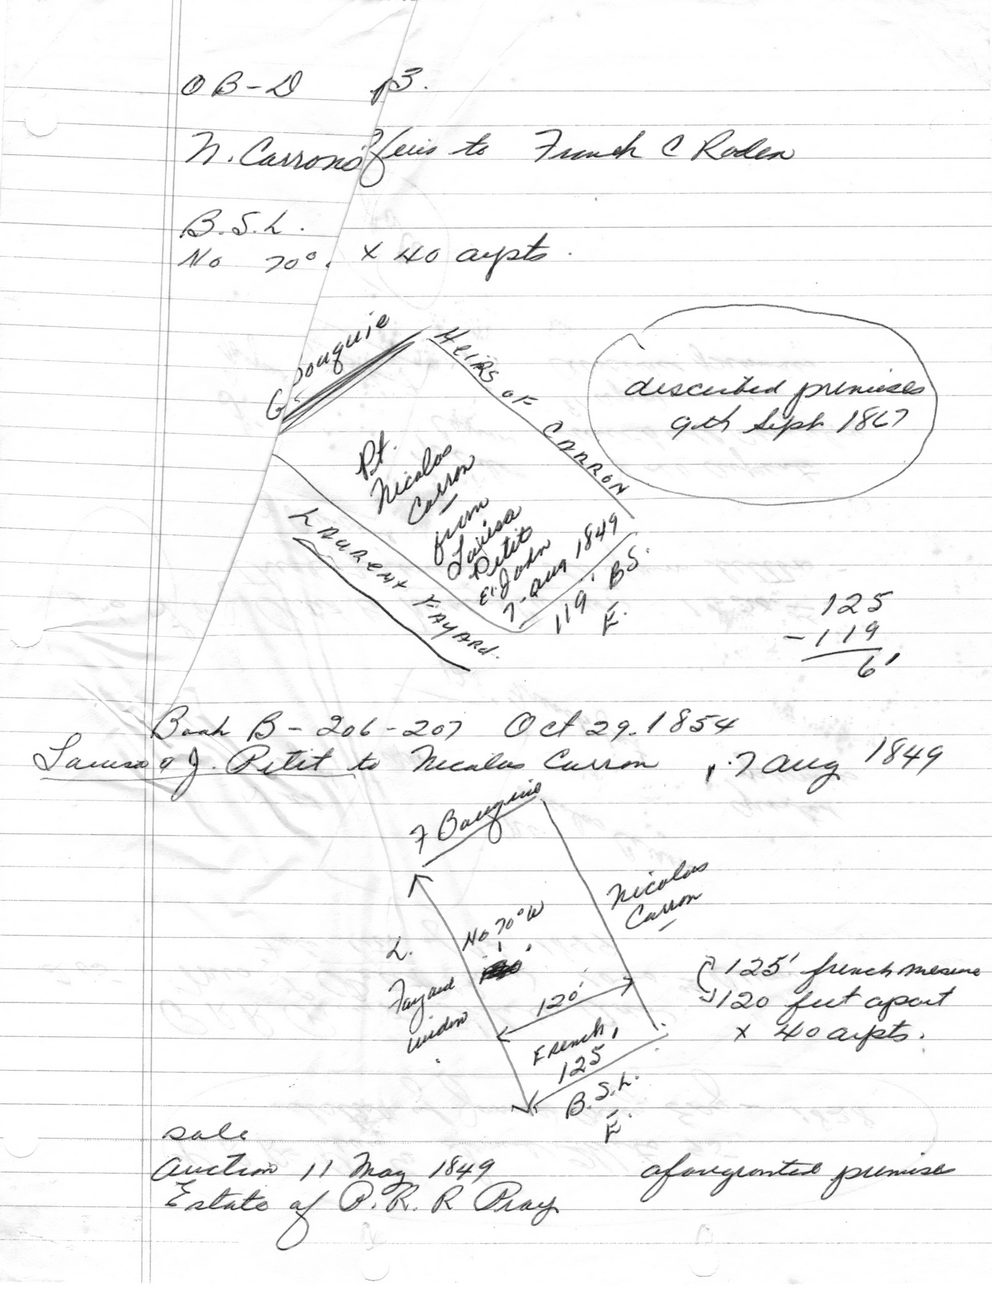 OB-D p3.
N. Carron's heirs to Frank C Roden
B.S.L.
No 70°. x 40 arpts.
HEIRS OF CARRON
described premises
9th Sept 1867
Pt.
Nicolas
Carron
from
Louisa
Petit
& John
7-Aug 1849
119' BS.
E.
LAURENT FAYARD.
125
-119
6'
Book B-206-207 Oct 29. 1854
Louisa & J. Petit to Nicolas Carron, 7 Aug 1849
Nicolas
Carron
No 70° W
L.
Fayard
widow
120'
French,
125
B.S.L.
E.
125' french mesure
120 feet apart
x 40 arpts.
sale
Auction 11 May 1849
Estate of P. R. R Pray
premises